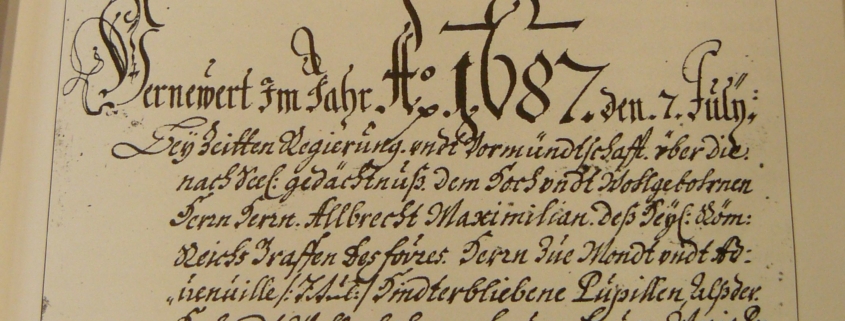 Vernewert Im Jahr. Aº. 1687. den. 7. July:
Bey Zeitten Regierung. vndt Vormündtschafft. vber die.
nach Seel: gedächtnuß. dem Hoch vndt Wohlgebohrnen
Herrn Herrn. Allbrecht Maximilian. deß Heyl: Röm:
Reichs Graffen des fovres. Herrn Zue Mondt vndt Ad-
uenuille /: Titul: / Hindterbliebene Pupillen, Alß der.